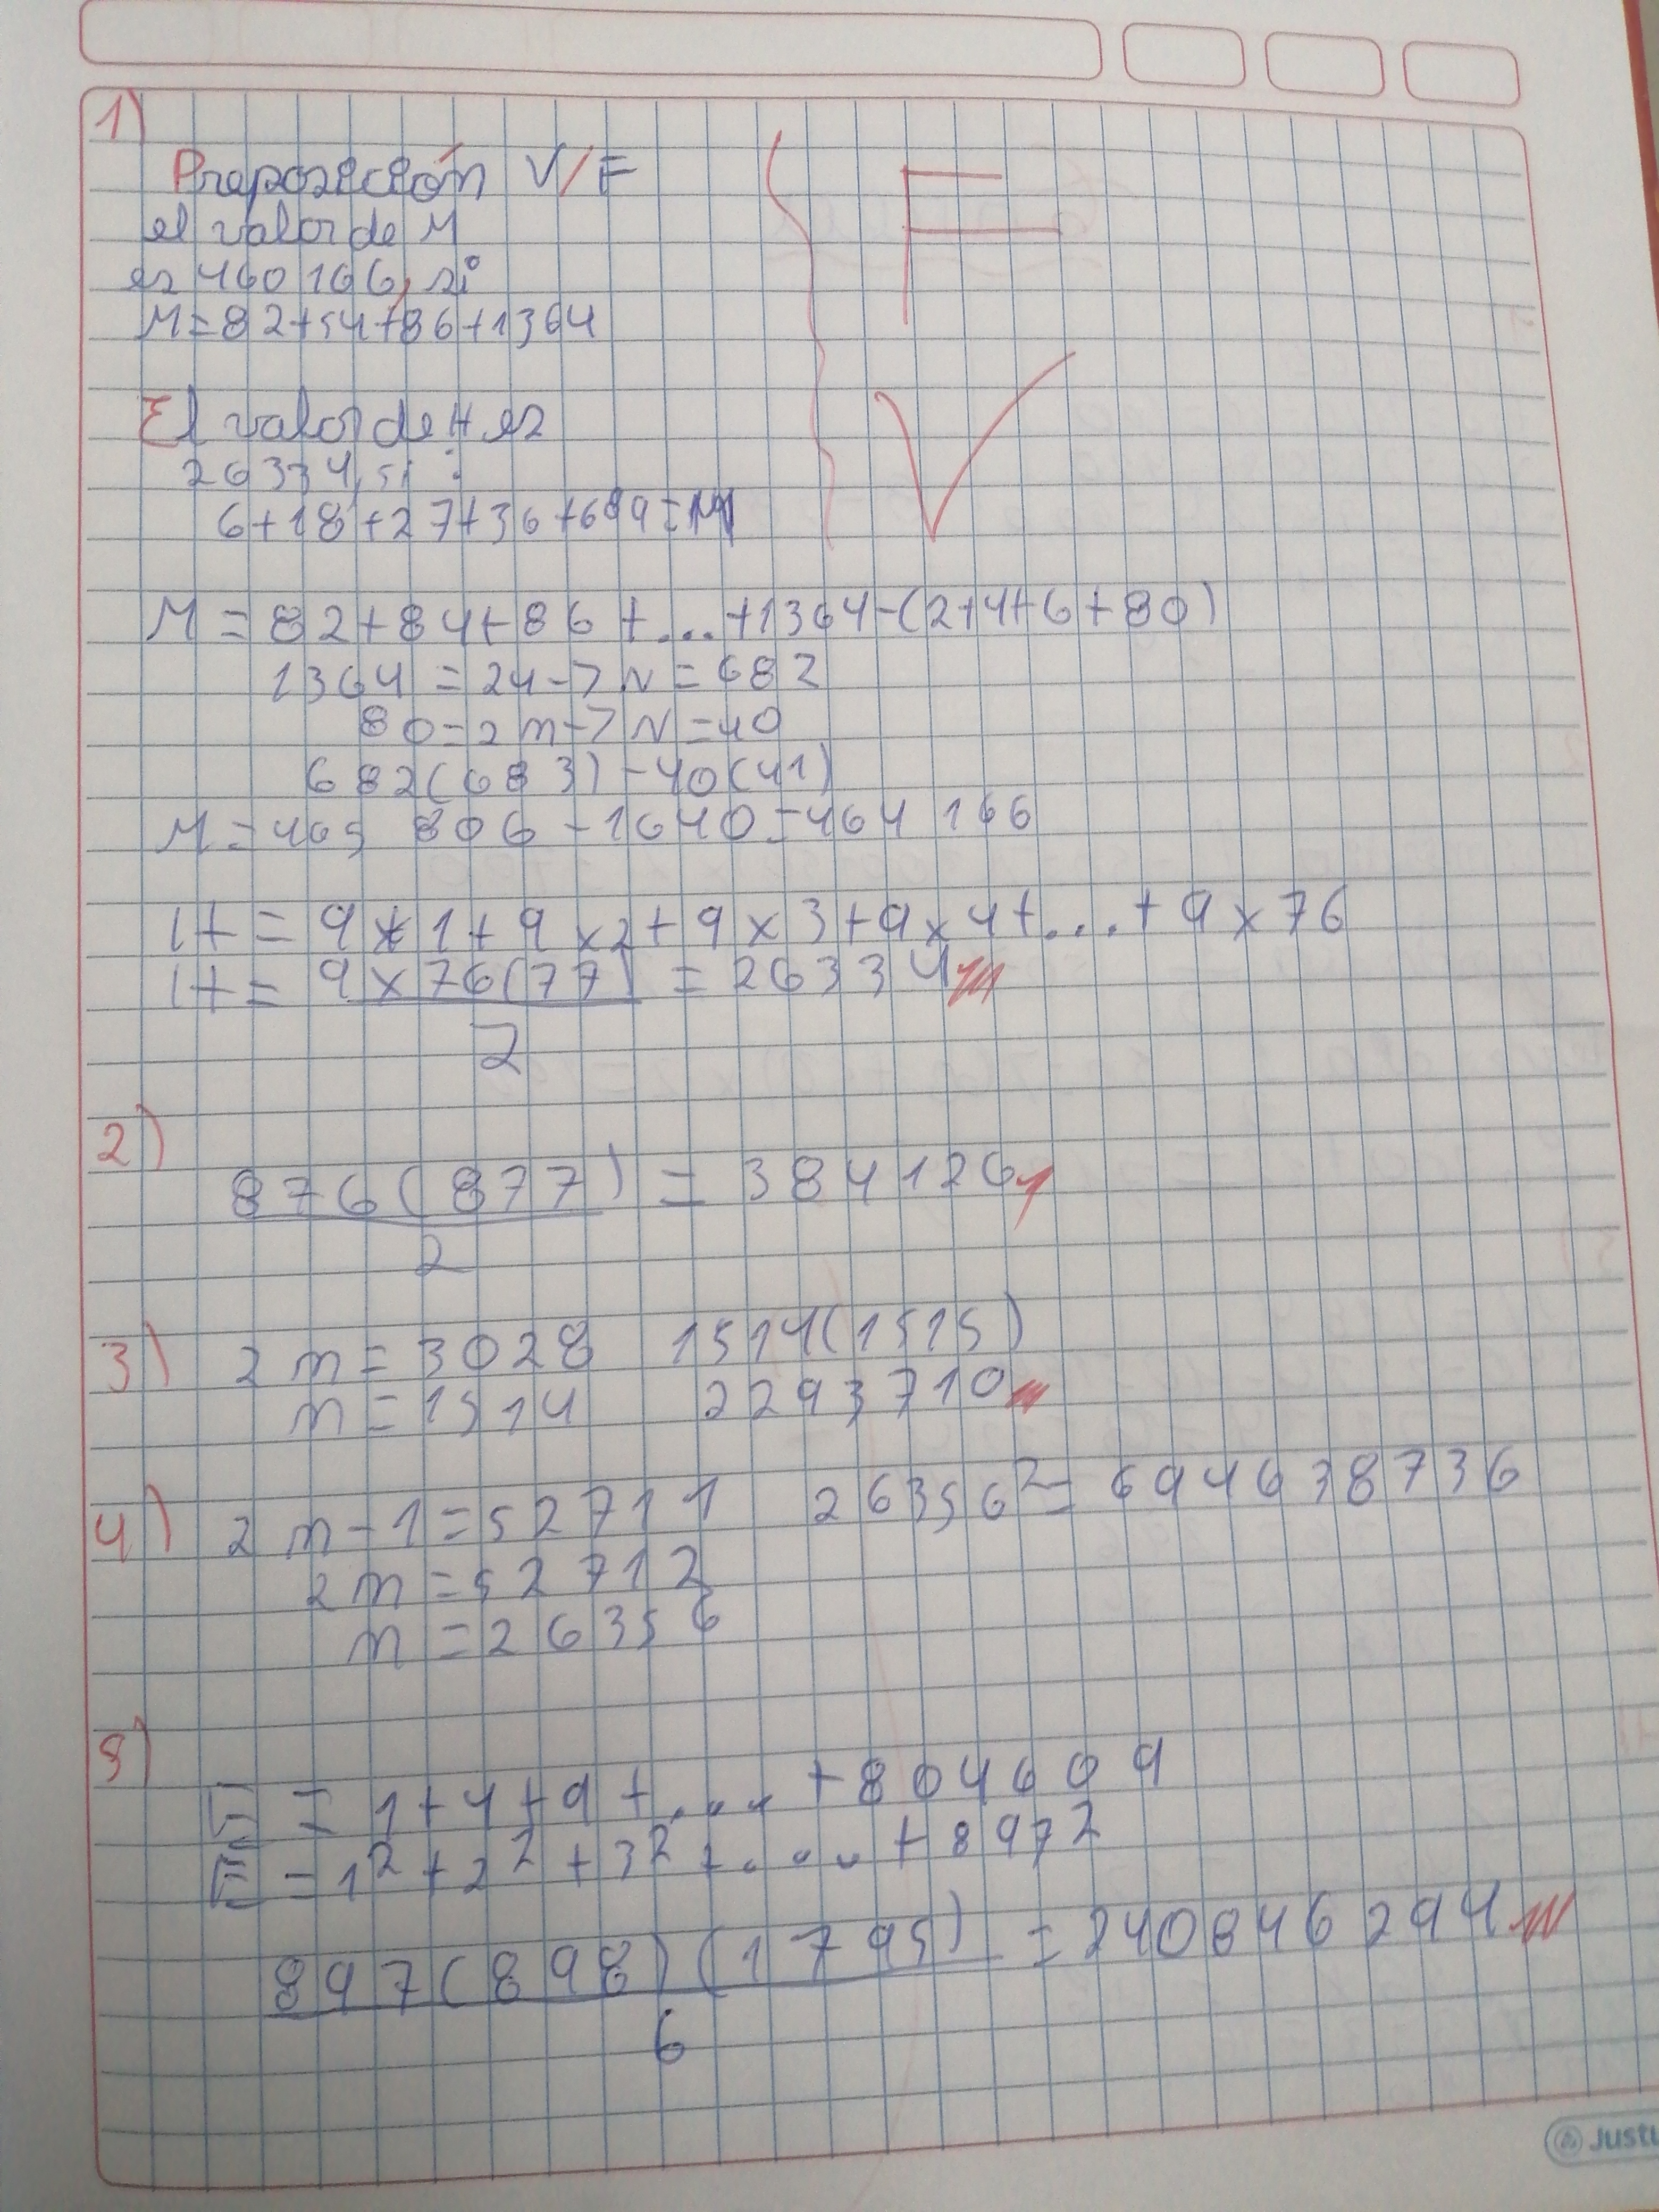 1)
Proposición V/F
el valor de M
es 460 166, si
M=82+54+86+1364
F
El valor de H es
26334, si :
6+18+27+36+689=M
V
M = 82+84+86+...+1364-(2+4+6+80)
1364 = 24-> N = 682
80=2m->N=40
682(683)-40(41)
M=465 806-1640=464 166
H = 9x1+9x2+9x3+9x4+...+9x76
H = 9x76(77) = 26334
2
2)
876(877) = 384126
2
3) 2m=3028 1514(1515)
m=1514 2293710
4) 2m-1=52711 26356²=694638736
2m=52712
m=26356
5)
E = 1+4+9+....+804609
E = 1²+2²+3²+....+8972
897(898)(1795) = 240846294
6